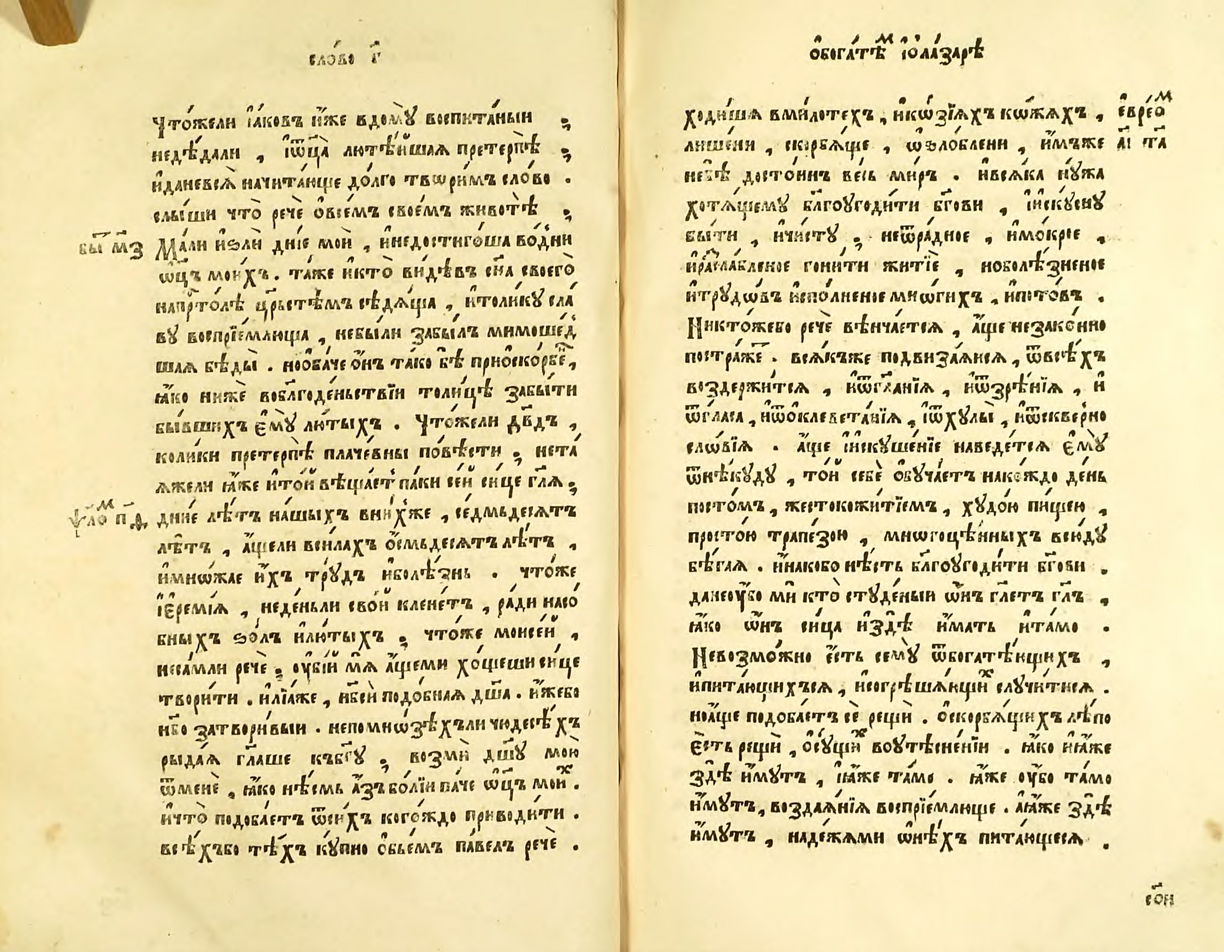 сло́во г҃
Что́жели і҆а́ковъ и҆́же вдому̀ воспита́ныи ;
недѣ́дали , і҆ѿц҃а̀ лютѣ́ишая претерпѣ̀ ;
и҆даневся̀ начита́юще до́лго твори́мъ сло́во .
слы́ши что̀ речѐ ѻ҆все́мъ свое́мъ животѣ̀ ;
бы҃ м҃з
Ма́ли и҆ѕлѝ дні́е моѝ , и҆недостиго́ша во́дни
ѿц҃ъ мои́хъ . та́же и҆кто̀ ви́дѣвъ сн҃а своего̀
напрⷭ҇то́лѣ црⷭ҇тѣмъ сѣдя́ща , и҆толи́ку сла́
ву воспрїе́млюща , небы́ли забы́лъ мимоше́д
шая бѣды̀ . ѻ҆ба́че ѻ҆́нъ та́ко бѣ̀ приско́рбенъ ,
ꙗ҆́ко нижѐ воблгоде́ньствїи толи́цѣ забы́ти
бы́вшихъ є҆му̀ лю́тыхъ . Что́жели дв҃дъ ,
коли́ки претерпѣ̀ плаче́вны по́вѣсти ; нета́
яжели ꙗ҆́же и҆то́й вѣща́етъ па́ки се́й си́це гл҃я ;
ѱало́м п҃ѳ
дни́е лѣ́тъ на́шыхъ вни́хже , се́дмьдесятъ
лѣ́тъ , а҆́щели всила́хъ ѻ҆́смьдесятъ лѣ́тъ ,
и҆мно́жае и҆́хъ тру́дъ и҆болѣ́знь . что́же
і҆ере́мїя , неде́ньли сво́й клене́тъ , ра́ди насо́
бны́хъ ѕо́лъ и҆лю́тыхъ ; что́же моисе́й ,
неса́мли речѐ ; оу҆бі́й мя̀ а҆́щеми хо́щеши си́це
твори́ти . и҆лїа́же , нб҃си подо́бная дш҃а . и҆́жебо
нб҃о затвори́выи . непомно́зѣхъли чудесѣ́хъ
рыда́я гл҃аше къбг҃у ; возмѝ дш҃у мою̀
ѿменѐ , ꙗ҆́ко нѣ́смь а҆́зъ бо́лїи па́че ѿц҃ъ мои́х .
и҆что̀ подоба́етъ ѿси́хъ кого́ждо приводи́ти .
всѣ́хъбо тѣ́хъ ку́пно ѻ҆бье́мъ па́велъ речѐ .
ѻ҆бога́тѣм і҆ѻла́зарѣ
ходи́ша вми́лотехъ , и҆ко́зїяхъ ко́жахъ ,
лише́ни , скорбя́ще , ѡ҆ѕло́блени , и҆́мъже
є҆вре́ом
а҃і т҃а
небѣ̀ досто́инъ ве́сь ми́ръ . и҆вся́ка ну́жа
хотя́щему бл҃гоугоди́ти бг҃ови , и҆скусну
бы́ти , и҆чи́сту ; неѿра́дное , и҆мо́крое ,
и҆разсла́бленое гони́ти житїѐ , но болѣ́зненое
и҆трудо́въ и҆спо́лненое мно́гихъ , и҆по́товъ .
Никто́жебо речѐ вѣнча́ется , а҆́ще незако́нно
постра́же . вся́къже подвиза́яися , ѿвсѣ́хъ
воздержи́тся , и҆ѿгл҃а́нїя , и҆ѿзрѣ́нїя , и҆
ѿгла́са , и҆ѿоклевета́нїя , і҆ѿхулы̀ , и҆ѿскве́рно
сло́вїя . а҆́ще и҆скуше́нїе наведе́тся є҆му̀
ѿнѣ́куду , то́й себѐ ѻ҆буча́етъ нако́ждо де́нь
посто́мъ , жестокожитїемъ , худо́ю пи́щею ,
просто́ю трапе́зою , многоцѣ́нныхъ всю́ду
бѣ́гая . и҆на́кобо нѣ́сть бл҃гоугоди́ти бг҃ови .
данеоу҆́бо мѝ кто̀ студе́ныи ѡ҆́нъ гл҃етъ гл҃ъ ,
ꙗ҆́ко ѡ҆́нъ си́ца и҆здѣ̀ и҆́мать и҆та́мо .
Невозмо́жно є҆́сть сему̀ ѿбогатѣ́ющихъ ,
и҆пита́ющихъся , и҆согрѣша́ющих случи́тися .
но а҆́ще подоба́етъ сѐ рещѝ . ѻ҆скорбя́щихъ лѣ́по
є҆́сть рещѝ , ѻ҆су́щих воутѣсне́нїи . ꙗ҆́ко и҆ꙗ҆́же
здѣ̀ и҆́мутъ , и҆ꙗ҆́же та́мо . ꙗ҆́же оу҆́бо та́мо
и҆́мутъ , воздая́нїя воспрїе́млюще . а҆ꙗ҆́же здѣ̀
и҆́мутъ , наде́жями ѡ҆нѣ́хъ пита́ющеся .